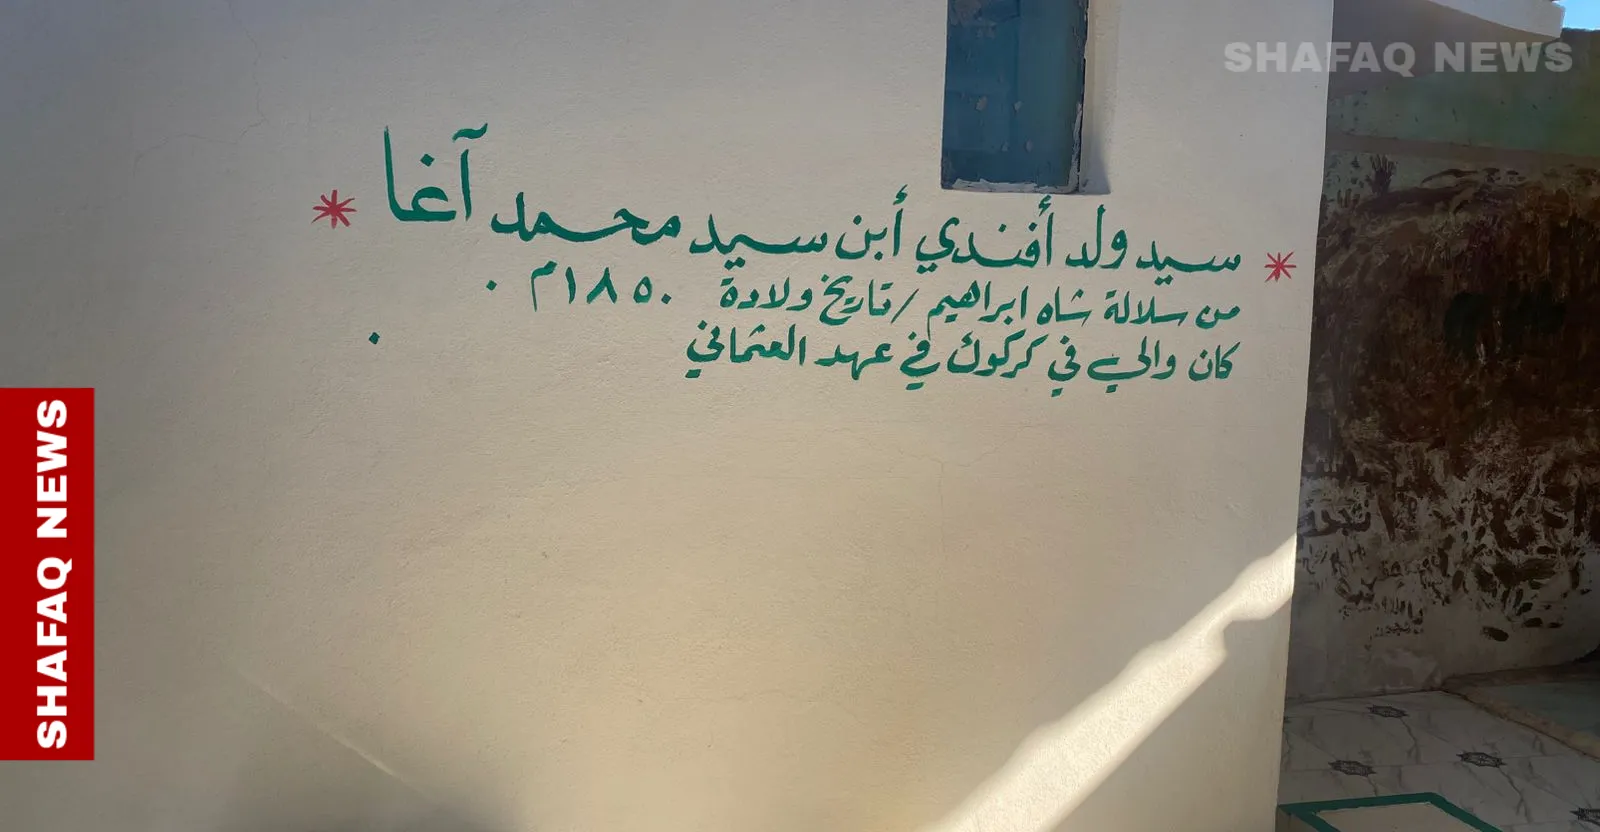 SHAFAQ NEWS
* سيد ولد أفندي أبن سيد محمد آغا *
من سلالة شاه ابراهيم / تاريخ ولادة ١٨٥٠م .
كان والي في كركوك في عهد العثماني .
SHAFAQ NEWS